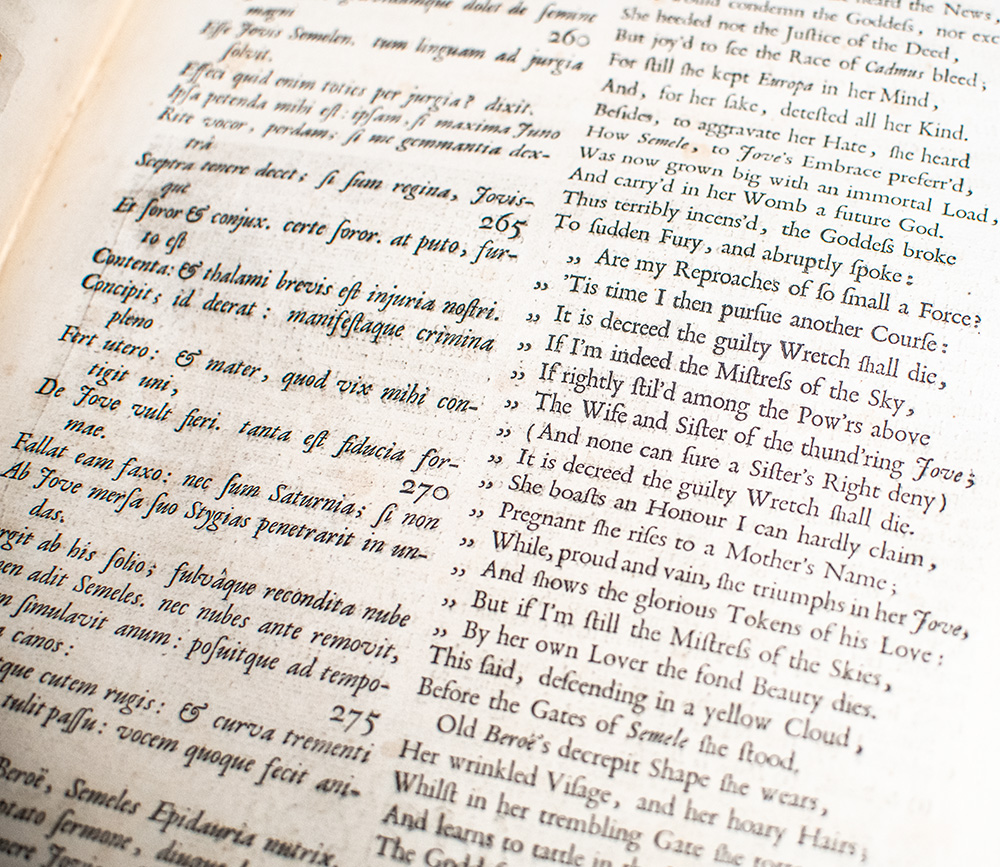 dolet de ſemine
magni 260
Eſſe Jovis Semelen. tum linguam ad jurgia
ſolvit.
Effeci quid enim toties per jurgia? dixit.
Ipſa petenda mihi eſt: ipſam, ſi maxima Juno
Rite vocor, perdam; ſi me gemmantia dex-
trâ
Sceptra tenere decet; ſi ſum regina, Jovis-
que 265
Et ſoror & conjux. certe ſoror. at puto, fur-
to eſt
Contenta: & thalami brevis eſt injuria noſtri.
Concipit; id deerat: manifeſtaque crimina
pleno
Fert utero: & mater, quod vix mihi con-
tigit uni,
De Jove vult fieri. tanta eſt fiducia for-
mae. 270
Fallat eam faxo: nec ſum Saturnia; ſi non
Ab Jove merſa ſuo Stygias penetrarit in un-
das.
rgit ab his ſolio; fulvâque recondita nube
men adit Semeles. nec nubes ante removit,
m ſimulavit anum: poſuitque ad tempo-
canos: 275
que cutem rugis: & curva trementi
tulit paſſu: vocem quoque fecit ani-
Beroë, Semeles Epidauria nutrix.
ptato ſermone, diuque
heard the News,
condemn the Goddeſs, nor exc
She heeded not the Juſtice of the Deed,
But joy'd to ſee the Race of Cadmus bleed;
For ſtill ſhe kept Europa in her Mind,
And, for her ſake, deteſted all her Kind.
Beſides, to aggravate her Hate, ſhe heard
How Semele, to Jove's Embrace preferr'd,
Was now grown big with an immortal Load,
And carry'd in her Womb a future God.
Thus terribly incens'd, the Goddeſs broke
To ſudden Fury, and abruptly ſpoke:
„ Are my Reproaches of ſo ſmall a Force?
„ 'Tis time I then purſue another Courſe:
„ It is decreed the guilty Wretch ſhall die,
„ If I'm indeed the Miſtreſs of the Sky,
„ If rightly ſtil'd among the Pow'rs above
„ The Wife and Siſter of the thund'ring Jove;
„ (And none can ſure a Siſter's Right deny)
„ It is decreed the guilty Wretch ſhall die.
„ She boaſts an Honour I can hardly claim,
„ Pregnant ſhe riſes to a Mother's Name;
„ While, proud and vain, ſhe triumphs in her Jove,
„ And ſhows the glorious Tokens of his Love:
„ But if I'm ſtill the Miſtreſs of the Skies,
„ By her own Lover the fond Beauty dies.
This ſaid, deſcending in a yellow Cloud,
Before the Gates of Semele ſhe ſtood.
Old Beroë's decrepit Shape ſhe wears,
Her wrinkled Viſage, and her hoary Hairs;
Whilſt in her trembling Gate ſhe
And learns to tattle in the
The